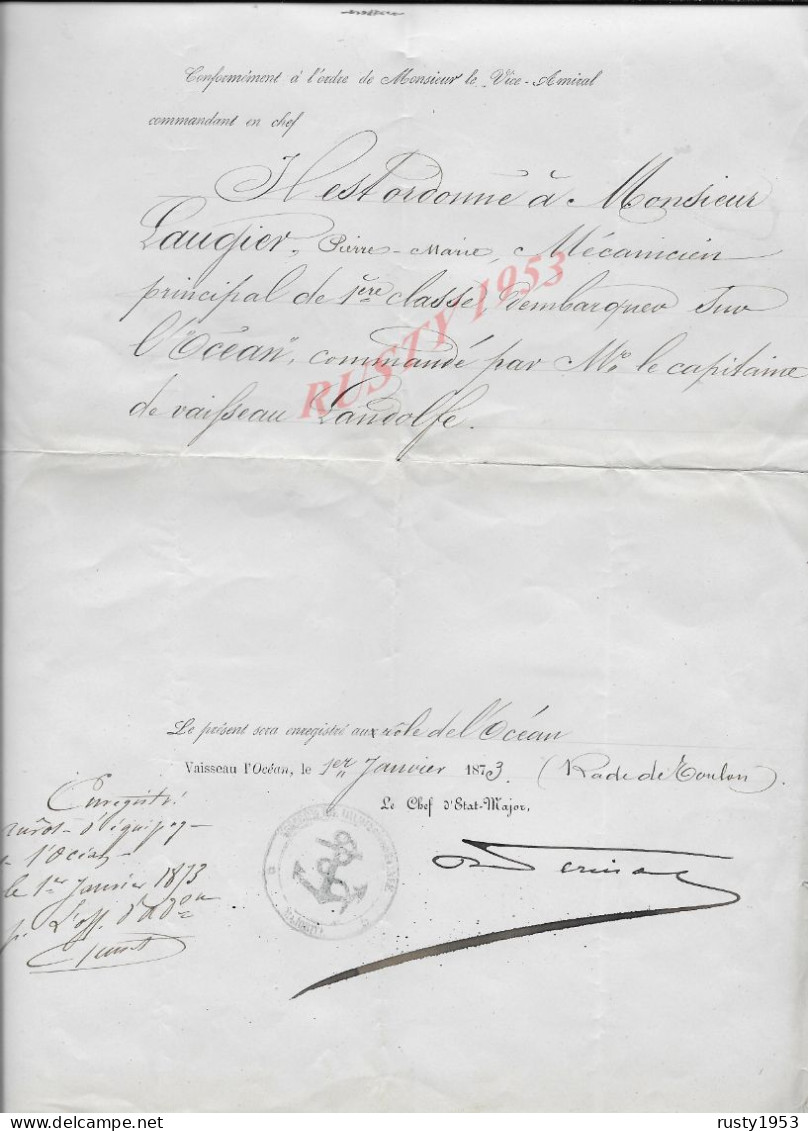 Conformément à l'ordre de Monsieur le Vice-Amiral
commandant en chef
Il est ordonné à Monsieur
Laugier, Pierre-Marie, Mécanicien
principal de 1ère classe d'embarquer sur
l'"Océan", commandé par Mr. le capitaine
de vaisseau Landolfe.
RUSTY 1953
Le présent sera enregistré aux rôle de l'Océan
Vaisseau l'Océan, le 1er Janvier 1873. (Rade de Toulon).
Le Chef d'Etat-Major,
Enregistré
d'équipage
l'Océan
le 1er Janvier 1873
p. L'off. d'adon
rusty1953